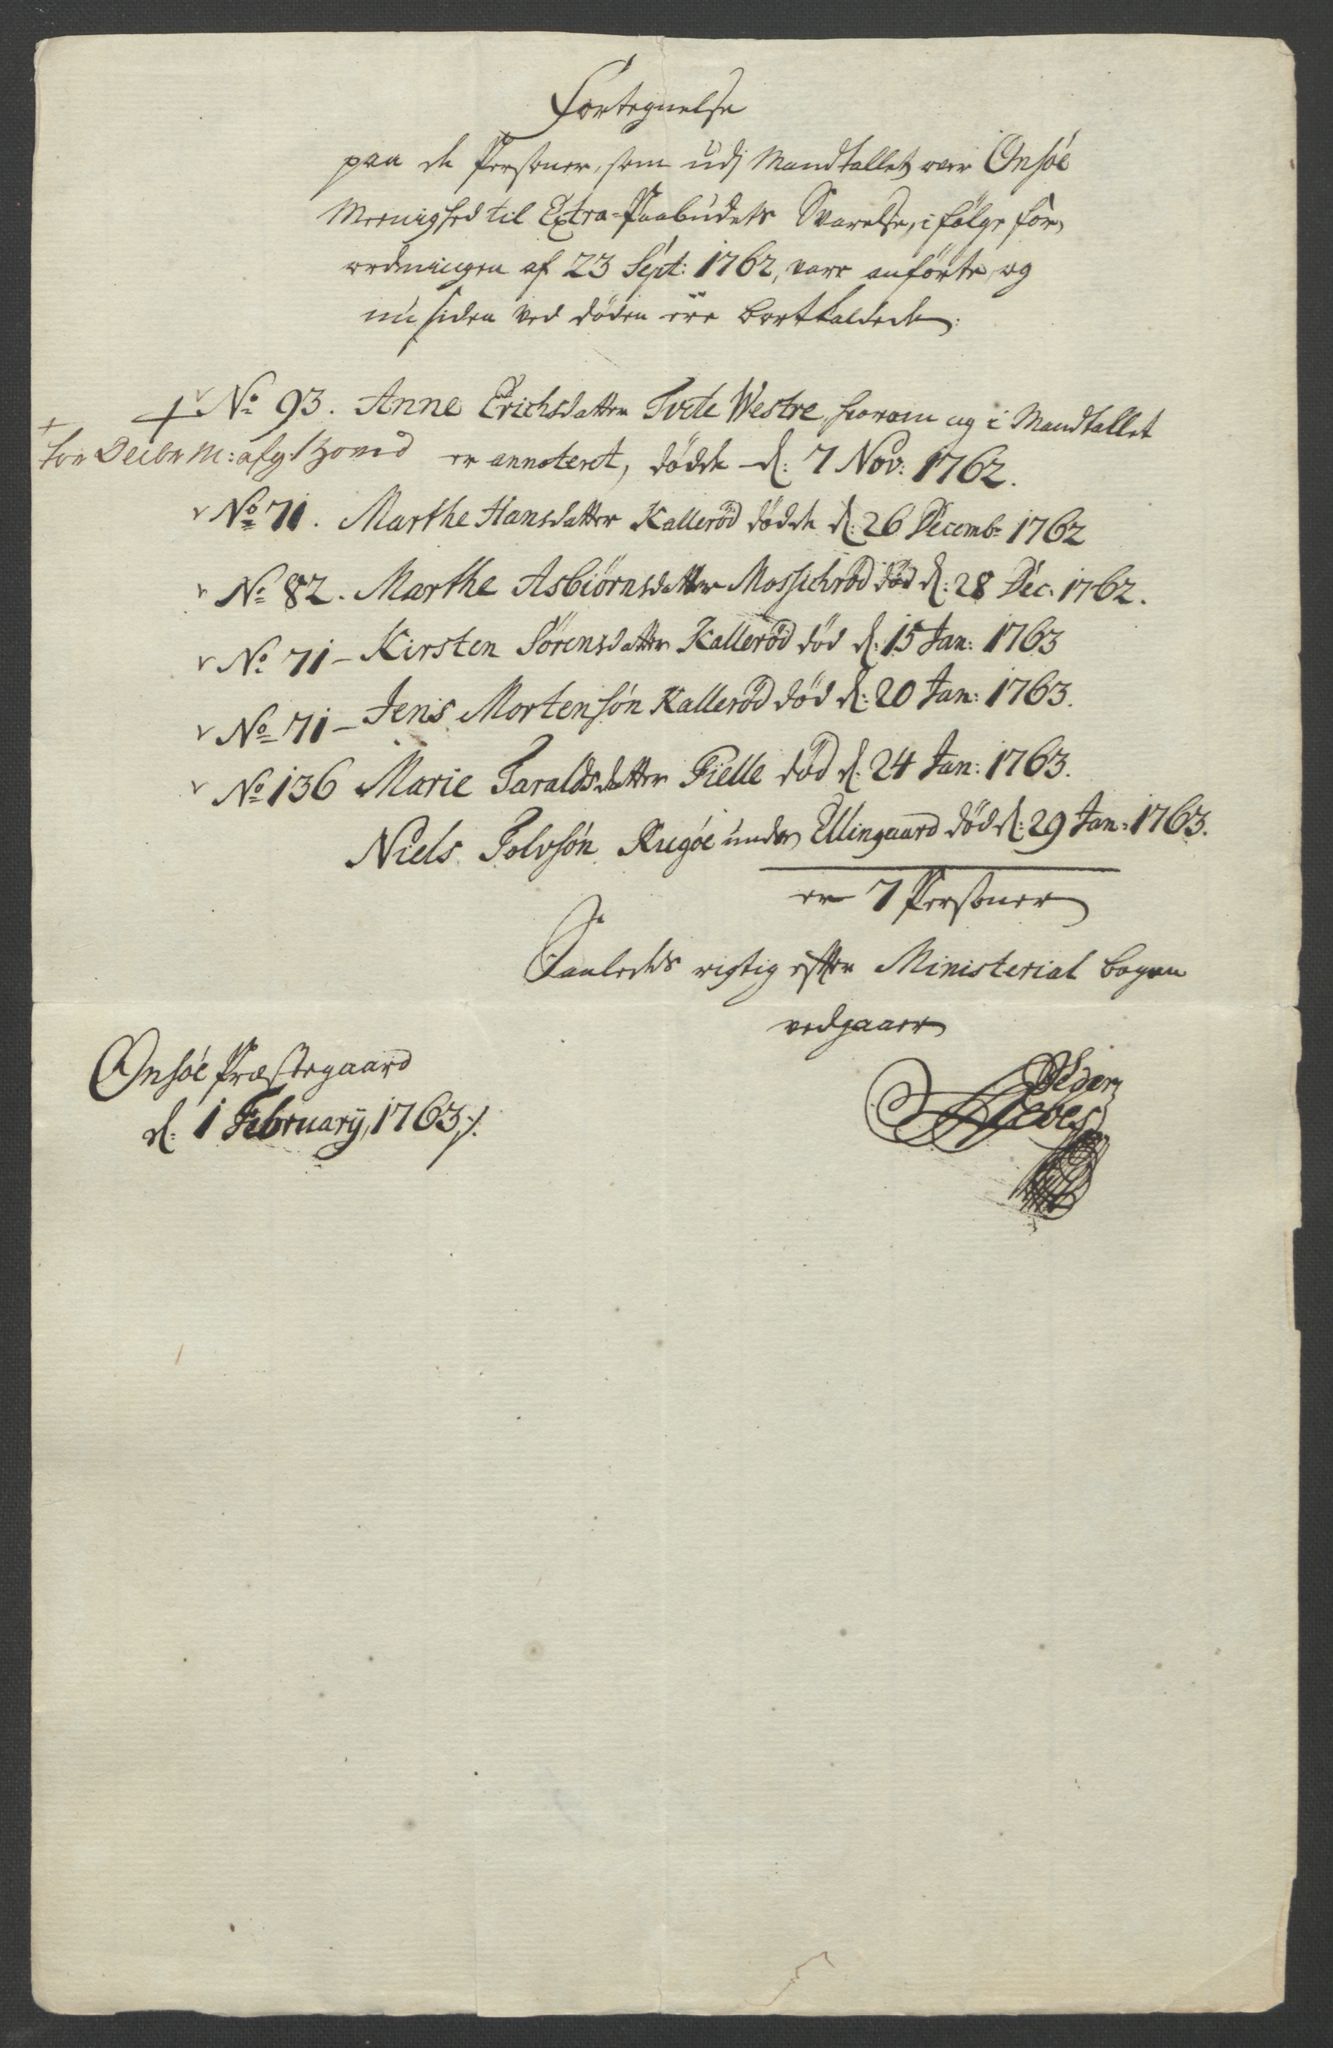 Fortegnelse
paa de Personer, som udj Mandtallet over Onsøe
Meenighed til Extra-Paabudets Svarelse, i følge For,
ordningen af 23 Sept: 1762, vare anførte, og
nu siden ved døden ere bortkaldede.
No 93. Anne Erichsdatter Tvete Westre, hvorom og i Mandtallet
+ for Decbr M: afg. 1 hoved
er annoteret, døde d: 7 Nov: 1762.
No 71. Marthe Hansdatter Kallerød døde d: 26 Decemb: 1762
No 82. Marthe Asbiørnsdatter død d: 28 Dec: 1762.
No 71 - Kirsten Sørensdatter Kallerød død d: 15 Jan: 1763
No 71 - Jens Mortensøn Kallerød død d: 20 Jan: 1763.
No 136 Marie Taraldsdatter Fielle død d: 24 Jan: 1763.
Niels Tolvsøn Rugøe under Ellingaard død d: 29 Jan: 1763.
er 7 Personer
Saaledes rigtig efter Ministerial bogen
vedgaaer
Onsøe Præstegaard
d: 1 February, 1763 ./.
Peder